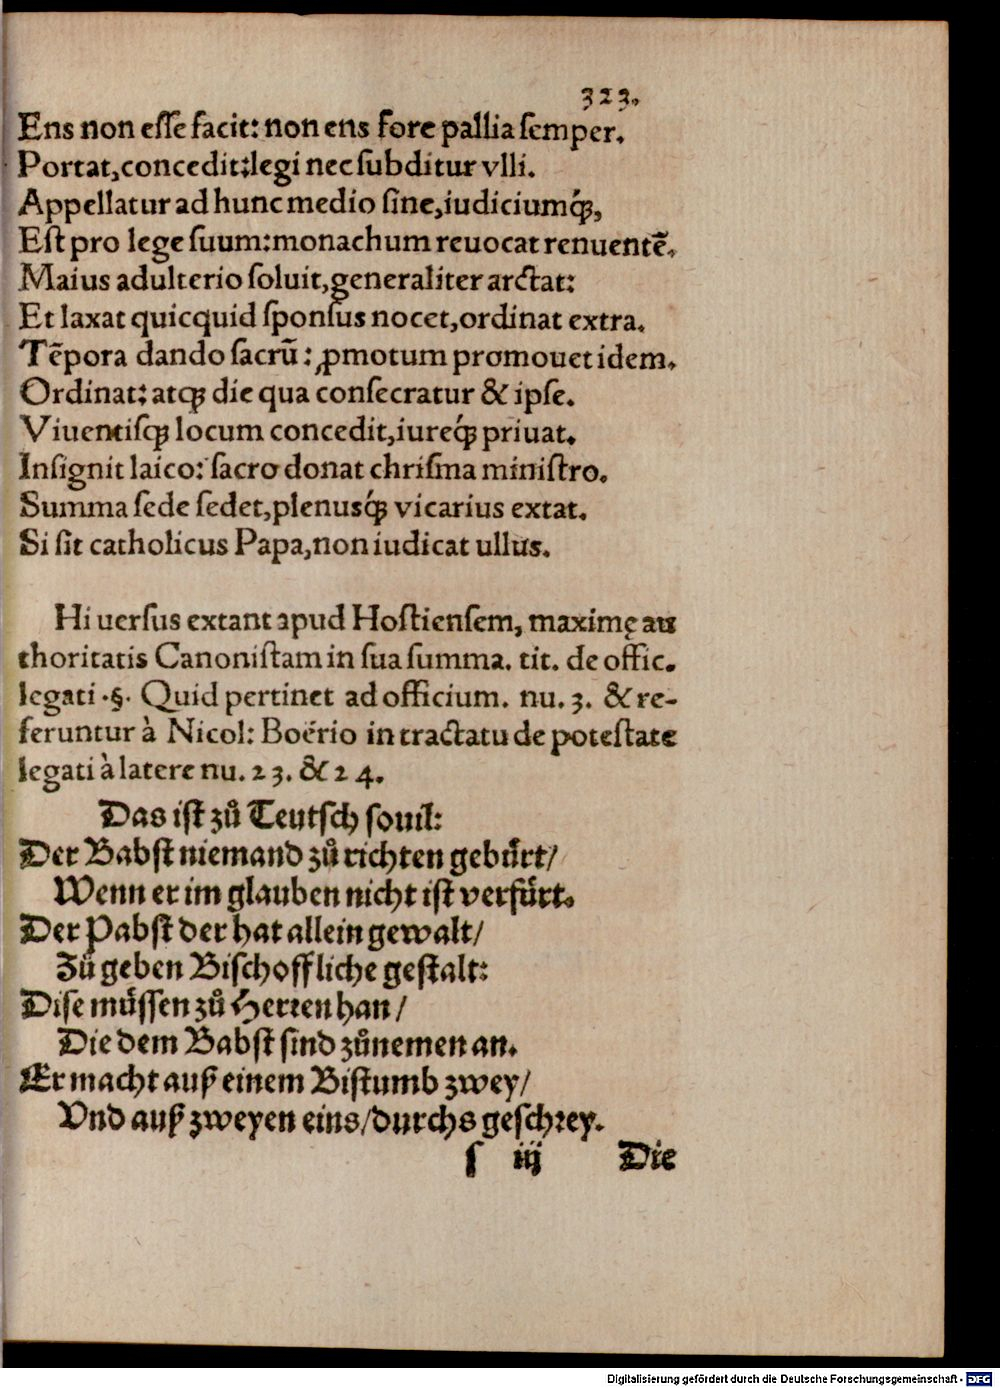 323.
Ens non eſſe facit: non ens fore pallia ſemper.
Portat, concedit: legi nec ſubditur vlli.
Appellatur ad hunc medio ſine, iudiciumq́ꝫ,
Eſt pro lege ſuum: monachum reuocat renuentē.
Maius adulterio ſoluit, generaliter arctat:
Et laxat quicquid ſponſus nocet, ordinat extra.
Tēpora dando ſacrū: ꝓmotum promouet idem.
Ordinat: atqꝫ die qua conſecratur & ipſe.
Viuentiſqꝫ locum concedit, iureq́ꝫ priuat.
Inſignit laico: ſacro donat chriſma miniſtro.
Summa ſede ſedet, plenusq́ꝫ vicarius extat.
Si ſit catholicus Papa, non iudicat ullus.
Hi uerſus extant apud Hoſtienſem, maximę au
thoritatis Canoniſtam in ſua ſumma. tit. de offic.
legati .§. Quid pertinet ad officium. nu. 3. & re-
feruntur à Nicol: Boërio in tractatu de poteſtate
legati à latere nu. 23. & 24.
Das iſt zů Teutſch ſouil:
Der Babſt niemand zů richten gebürt/
Wenn er im glauben nicht iſt verfürt.
Der Pabſt der hat allein gewalt/
Zů geben Biſchoffliche geſtalt:
Diſe müſſen zů Herren han/
Die dem Babſt ſind zůnemen an.
Er macht auß einem Biſtumb zwey/
Vnd auß zweyen eins/durchs geſchrey.
ſ iij Die
Digitalisierung gefördert durch die Deutsche Forschungsgemeinschaft - DFG